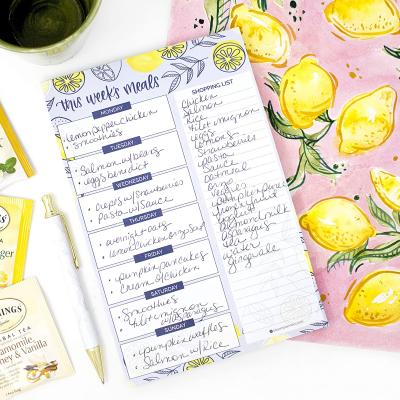 this week's meals
MONDAY
• Lemon pepper chicken
• Smoothies
TUESDAY
• Salmon w/
• eggs benedict
WEDNESDAY
• crepes w/ strawberries
• Pasta w/ sauce
THURSDAY
• overnight oats
• Lemon chicken orzo soup
FRIDAY
• pumpkin pancakes
• cream of chicken
SATURDAY
• Smoothies
• filet mignon
w/ asparagus
SUNDAY
• pumpkin waffles
• Salmon w/ Rice
SHOPPING LIST
Chicken
Salmon
Rice
filet mignon
eggs
Lemons
Strawberries
pasta
Sauce
oatmeal
orzo
veggies
pumpkin puree
yogurt
almond milk
asparagus
water
NINGS
HERBAL TEA
Chamomile,
Honey & Vanilla